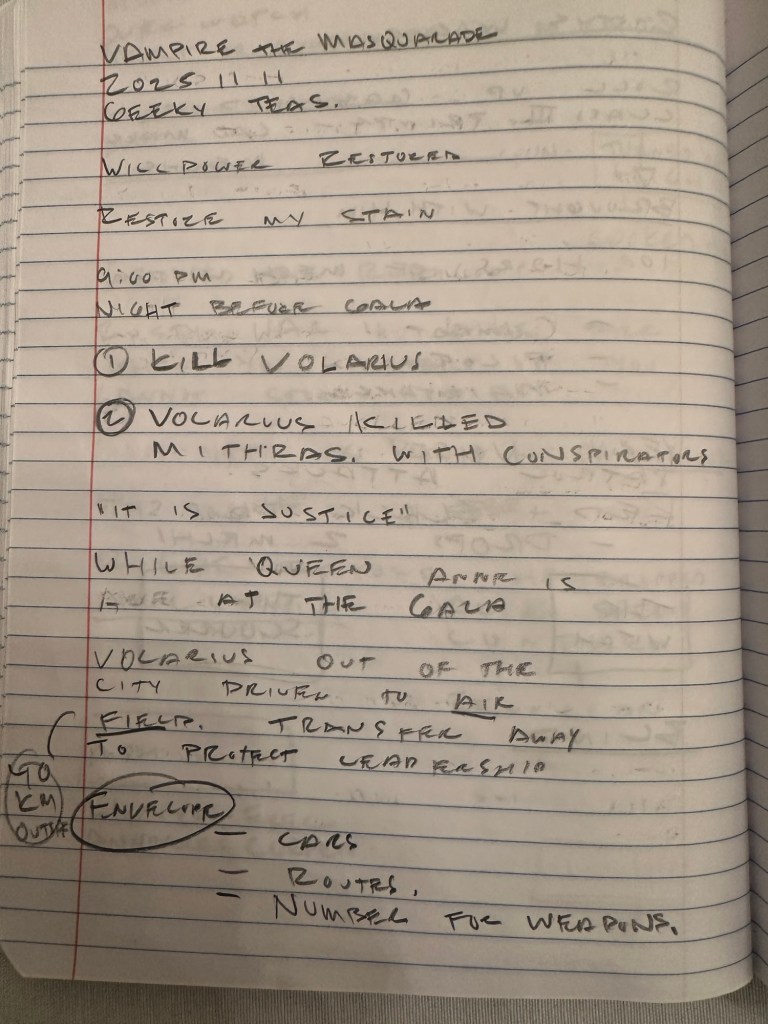 VAMPIRE THE MASQUARADE
2025 11 11
GEEKY TEAS.
WILLPOWER RESTORED
RESTORE MY STAIN
9:00 PM
NIGHT BEFORE GALA
① KILL VOLARIUS
② VOLARIUS KILLED
MITHRAS. WITH CONSPIRATORS
"IT IS JUSTICE"
WHILE QUEEN ANNE IS
AT THE GALA
VOLARIUS OUT OF THE
CITY DRIVEN TO AIR
FIELD. TRANSFER AWAY
TO PROTECT LEADERSHIP
KM
OUTSIDE
ENVELOPE
— CARS
— ROUTES,
— NUMBER FOR WEAPONS.